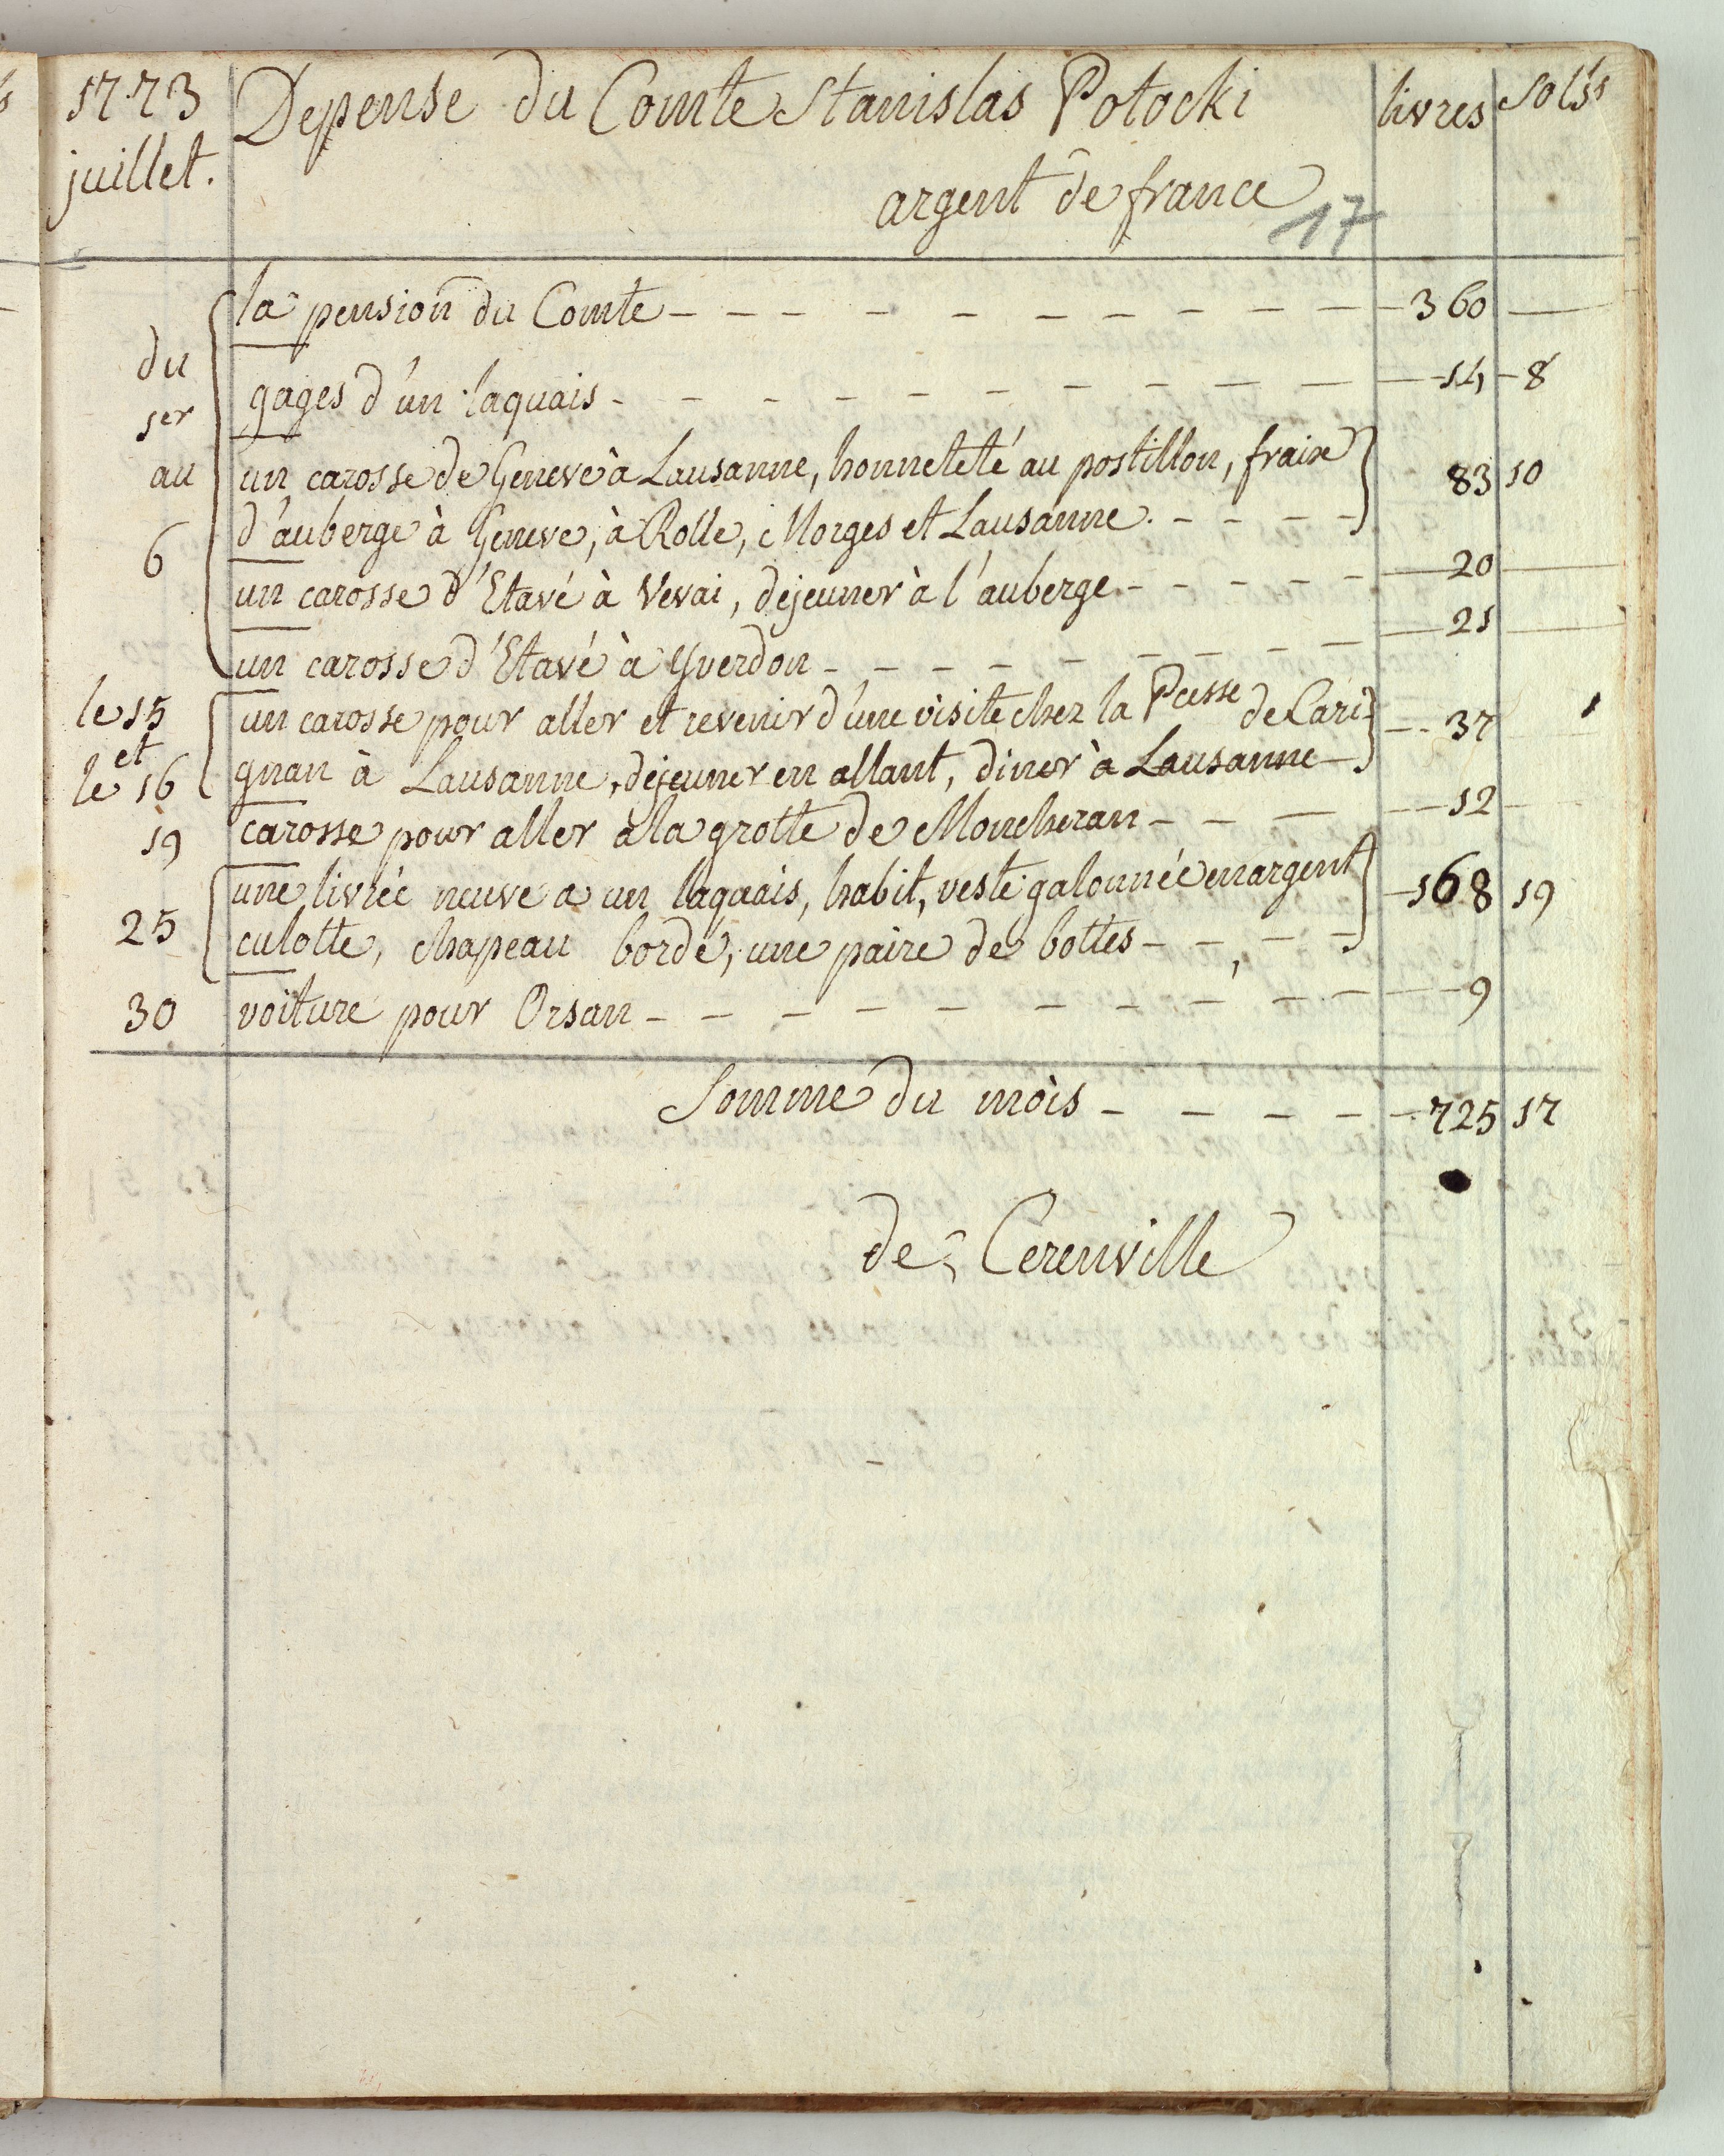 1773 Depense du Comte Stanislas Potocki livres sols
juillet. argent de france
17
la pension du Comte - - - - - - - - - - - 360 —
du
gages d'un laquais - - - - - - - - - - 14 - 8
1er
un carosse de Geneve à Lausanne, honneteté au postillon, fraix
au 83 10
d'auberge à Geneve, à Rolle, Morges et Lausanne. - - - -
6
un carosse d'Etavé à Vevai, dejeuner à l'auberge - - - - - 20 —
un carosse d'Etavé à Yverdon - - - - - - - - 21 —
le 15 un carosse pour aller et revenir d'une visite chez la Pcesse de Cari-
et 37
le 16 gnan à Lausanne, dejeuner en allant, diner à Lausanne -
19 carosse pour aller à la grotte de Moncheran - - - - 12 -
une livrée neuve a un laquais, habit, veste galonnée en argent
25 168 19
culotte, chapeau bordé, une paire de bottes - - - -
30 voiture pour Orsan - - - - - - - - - - 9
Somme du mois - - - - - 725 17
de Cerenville